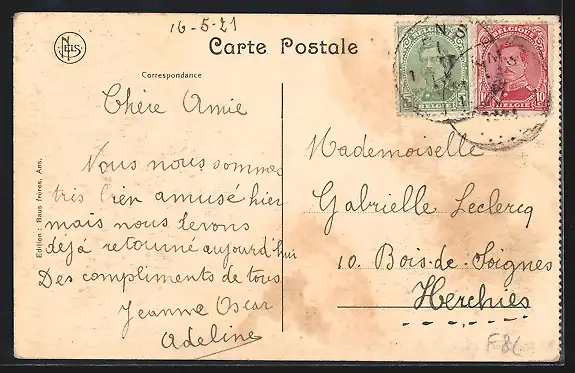 16-5-21
NELS
Carte Postale
Correspondance
Chère Amie
Nous nous sommes
très bien amusé hier
mais nous devons
déjà retourné aujourd'hui
Des compliments de tous
Jeanne Oscar
Adeline
Edition: Baus frères, Ans.
BELGIQUE
BELGIË
BELGIQUE
10 10
BELGIË
NS
Mademoiselle
Gabrielle Leclercq
10. Bois-de-Soignes
Herchies
F86